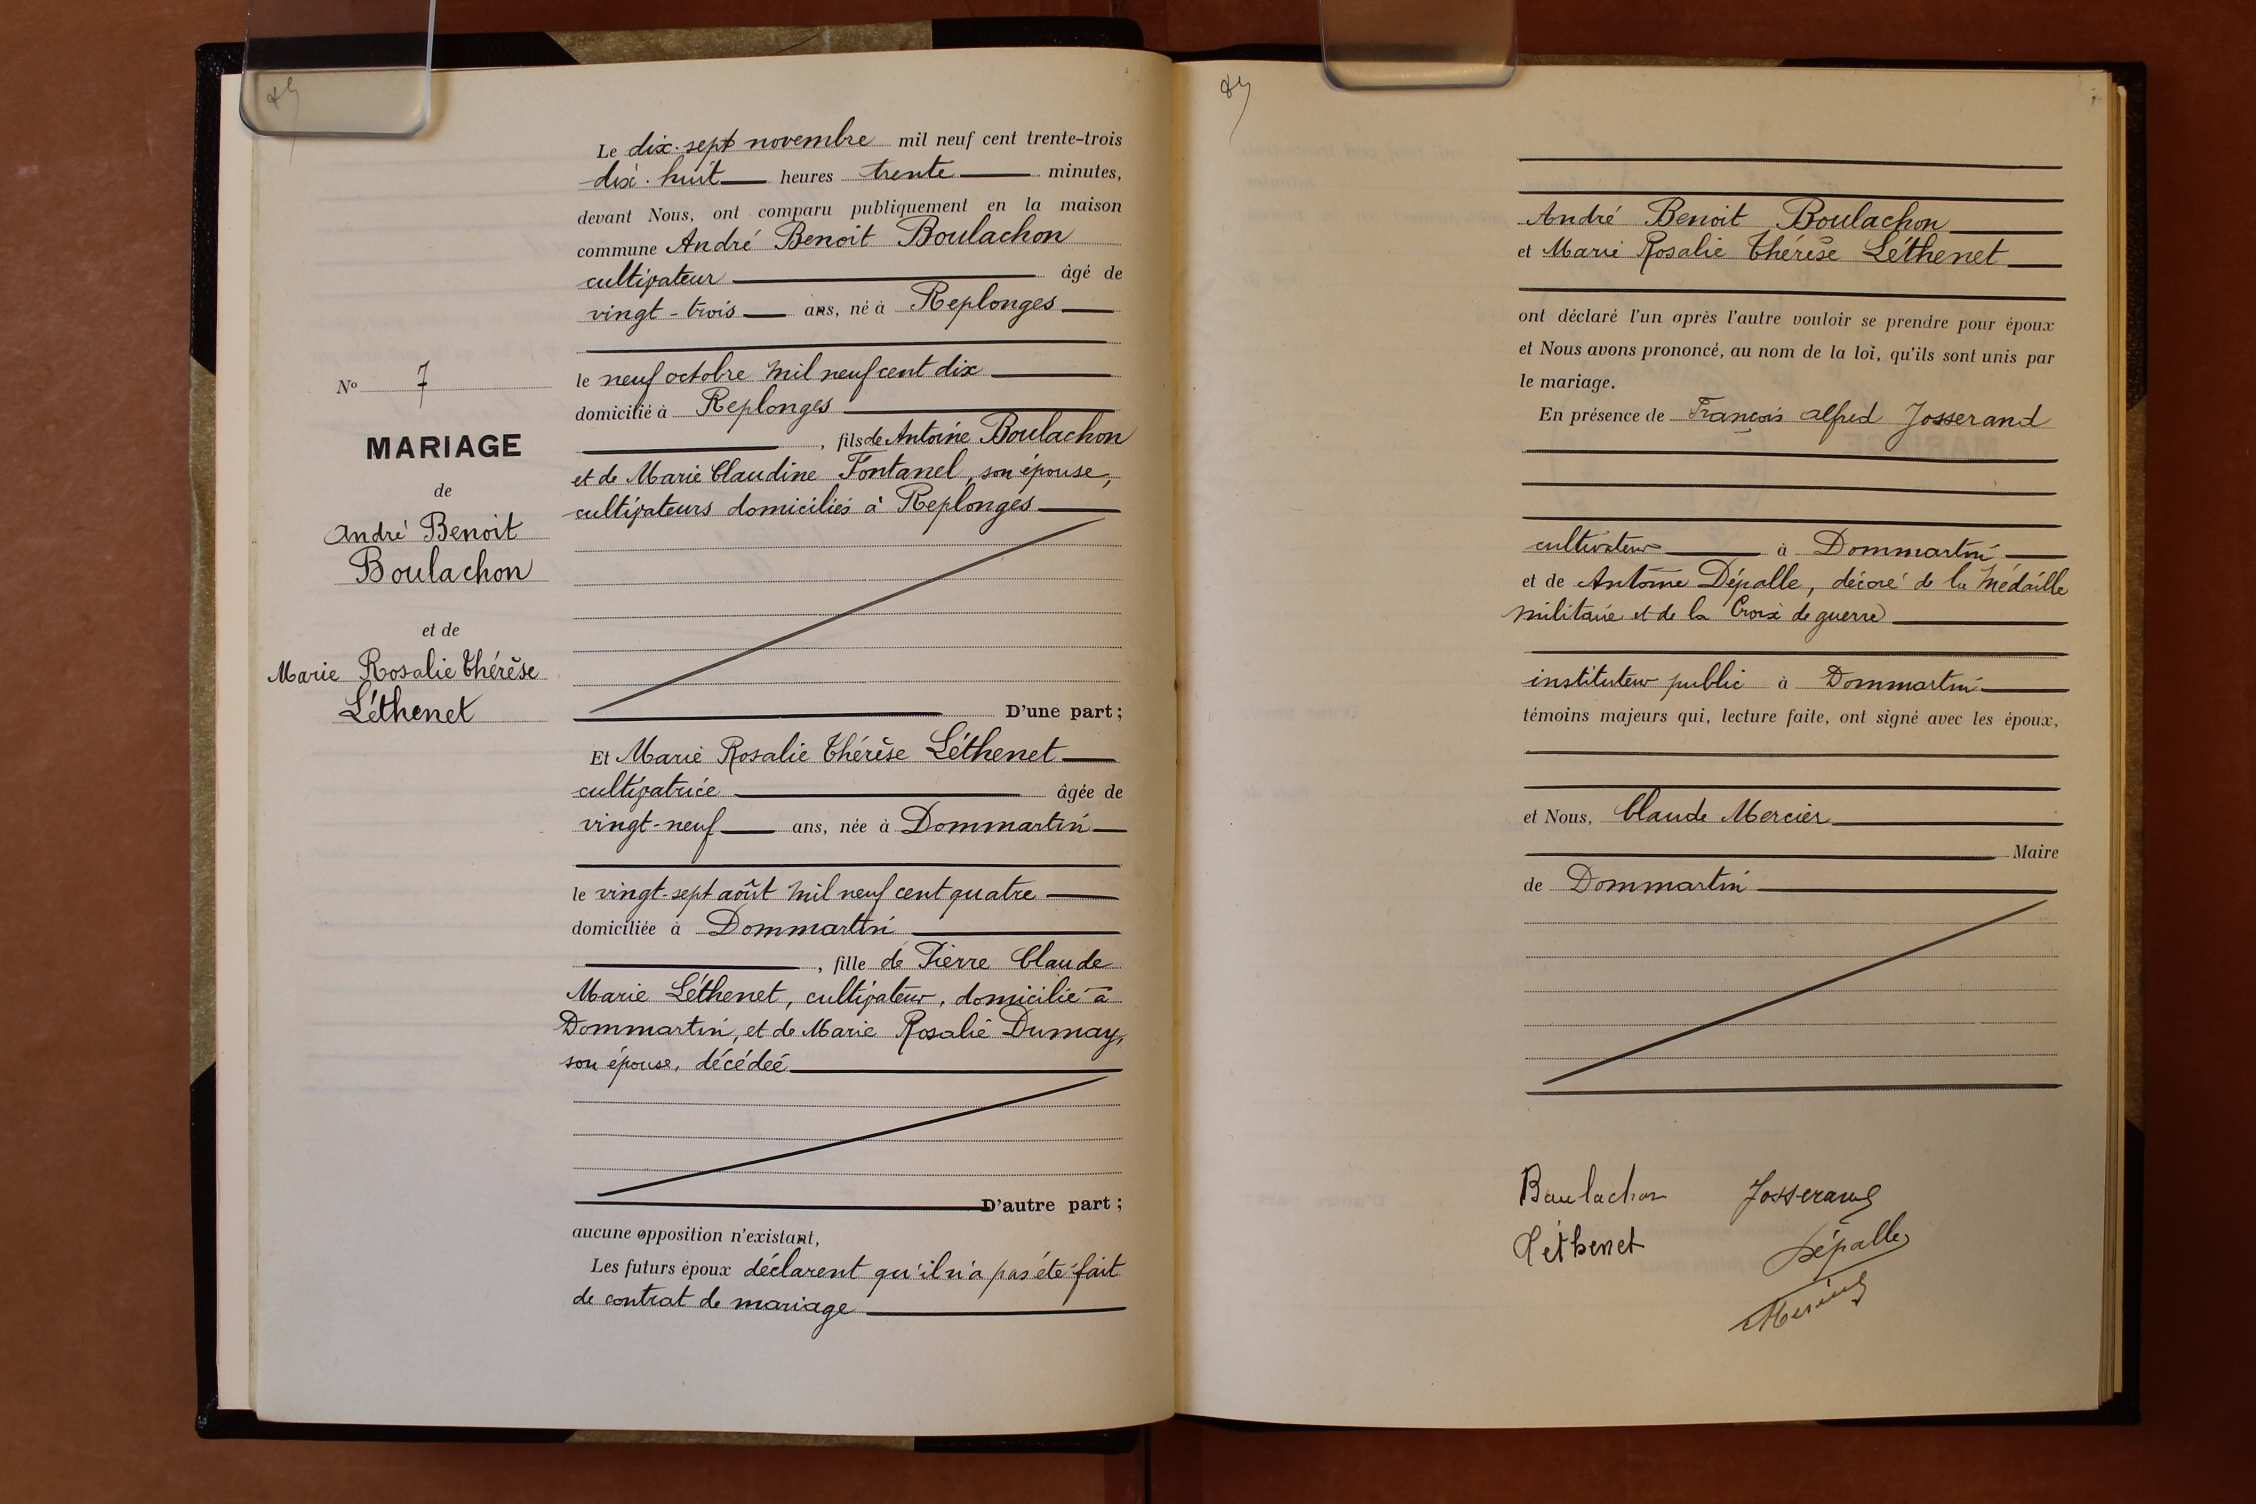 Le dix-sept novembre mil neuf cent trente-trois
dix-huit heures trente minutes,
devant Nous, ont comparu publiquement en la maison
commune André Benoit Boulachon
cultivateur âgé de
vingt-trois ans, né à Replonges
le neuf octobre mil neuf cent dix
domicilié à Replonges
, fils de Antoine Boulachon
et de Marie Claudine Fontanel, son épouse,
cultivateurs domiciliés à Replonges
D'une part ;
Nº 7
MARIAGE
de
André Benoit
Boulachon
et de
Marie Rosalie Thérèse
Léthenet
Et Marie Rosalie Thérèse Léthenet
cultivatrice âgée de
vingt-neuf ans, née à Dommartin
le vingt-sept août mil neuf cent quatre
domiciliée à Dommartin
, fille de Pierre Claude
Marie Léthenet, cultivateur, domicilié à
Dommartin, et de Marie Rosalie Dumay,
son épouse, décédée
D'autre part ;
aucune opposition n'existant,
Les futurs époux déclarent qu'il n'a pas été fait
de contrat de mariage
André Benoit Boulachon
et Marie Rosalie Thérèse Léthenet
ont déclaré l'un après l'autre vouloir se prendre pour époux
et Nous avons prononcé, au nom de la loi, qu'ils sont unis par
le mariage.
En présence de François Alfred Josserand
cultivateur à Dommartin
et de Antoine Dépalle, décoré de la Médaille
militaire et de la Croix de guerre
instituteur public à Dommartin
témoins majeurs qui, lecture faite, ont signé avec les époux,
et Nous, Claude Mercier
Maire
de Dommartin
Boulachon Josserand
Léthenet Dépalle
Mercier